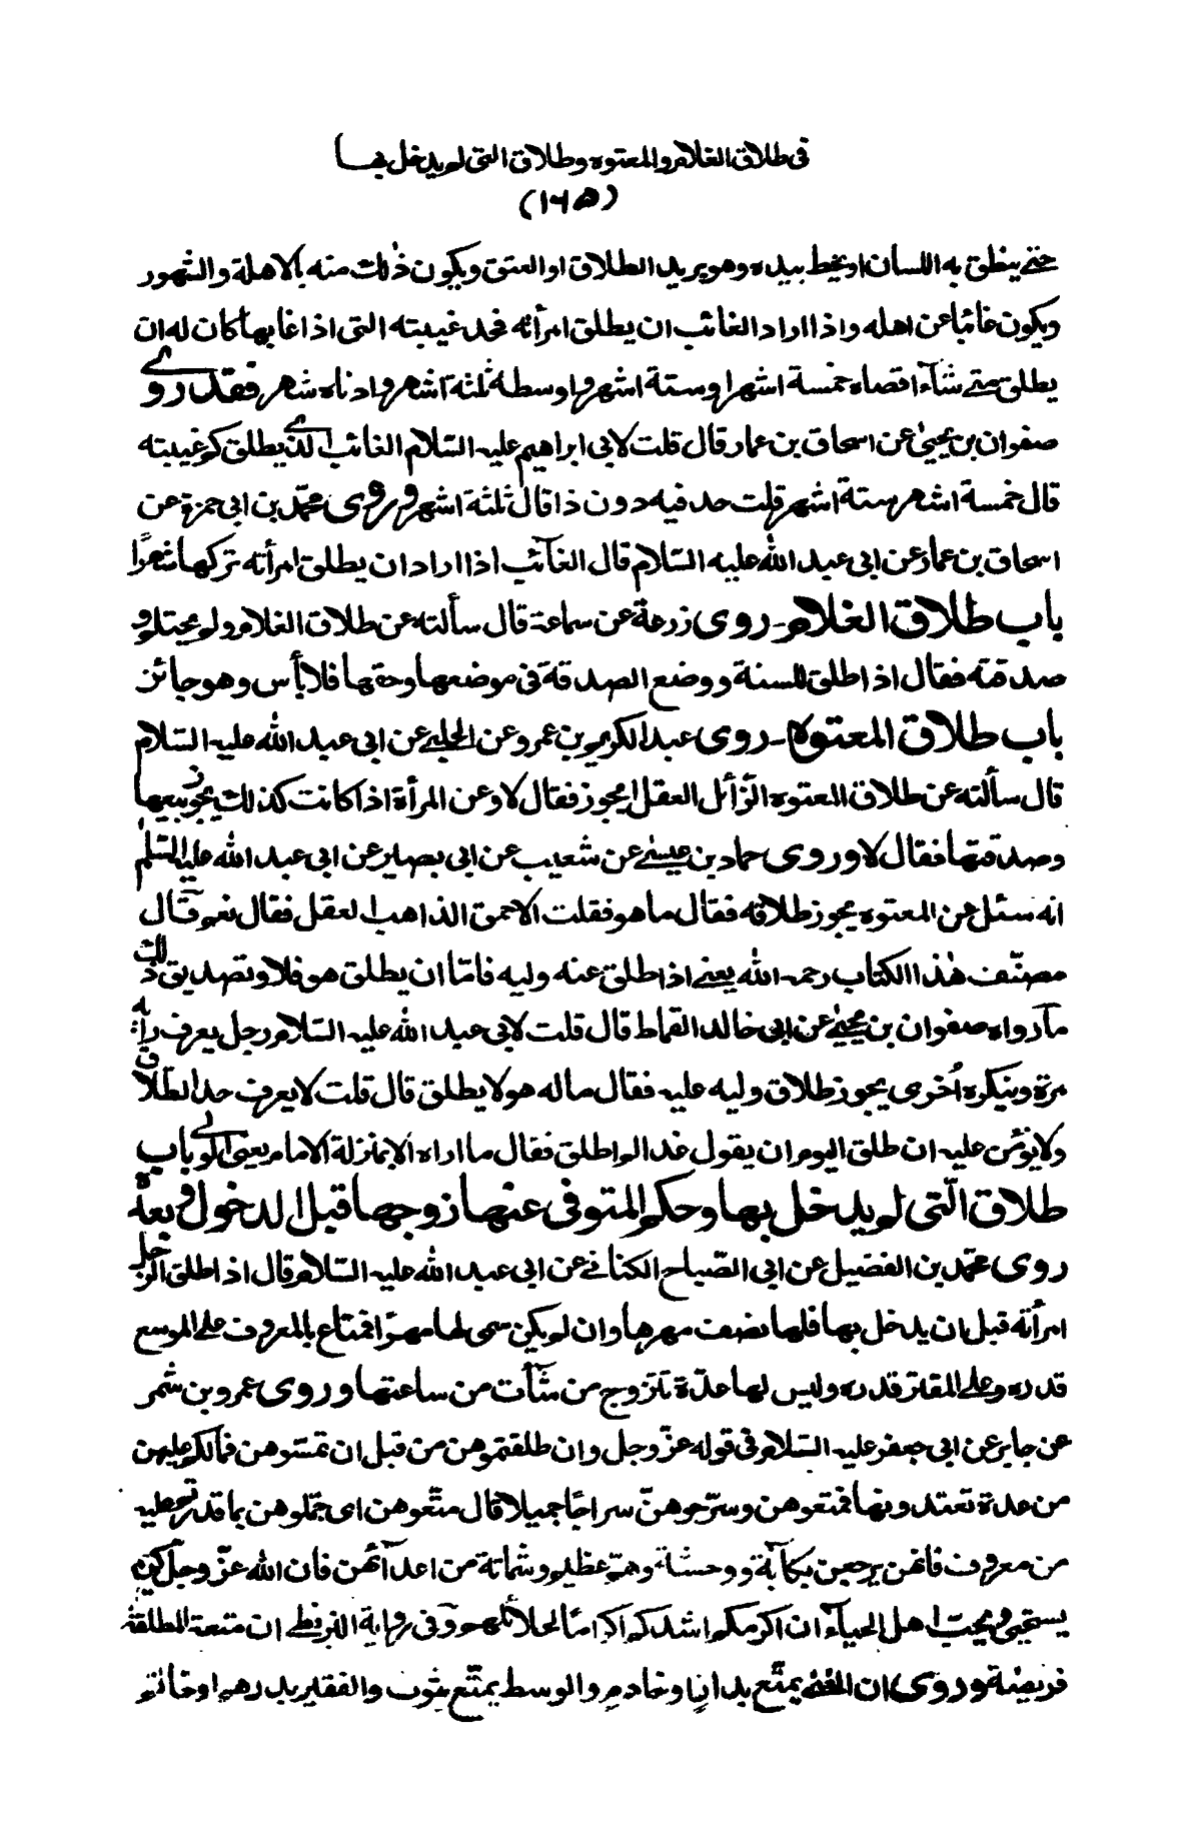 في طلاق الغلام والمعتوه وطلاق التي لم يدخل بها
(١٦٥)
حتى ينطق به اللسان او يخط بيده وهو يريد الطلاق او العتق ويكون ذلك منه بالاهلة والشهور
ويكون غائبا عن اهله واذا اراد الغائب ان يطلق امرأته فحد غيبته التي اذا غابها كان له ان
يطلق متى شآء اقصاه خمسة اشهر او ستة اشهر واوسطه ثلثة اشهر وادناه شهر فقد روى
صفوان بن يحيى عن اسحاق بن عمار قال قلت لابي ابراهيم عليه السّلام الغائب الذي يطلق كم غيبته
قال خمسة اشهر ستة اشهر قلت حد فيه دون ذا قال ثلثة اشهر وروى محمّد بن ابي حمزة عن
اسحاق بن عمار عن ابي عبد الله عليه السّلام قال الغآئب اذا اراد ان يطلق امرأته تركها شهرًا
باب طلاق الغلام ـ روى زرعة عن سماعة قال سألته عن طلاق الغلام ولم يحتلم و
صدقته فقال اذا طلق للسنة ووضع الصدقة في موضعها وحقها فلا بأس وهو جائز
باب طلاق المعتوه ـ روى عبد الكريم بن عمرو عن الحلبي عن ابي عبد الله عليه السّلام
قال سألته عن طلاق المعتوه الزّائل العقل ايجوز فقال لا وعن المرأة اذا كانت كذلك يجوز بيعها
وصدقتها فقال لا وروى حماد بن عيسى عن شعيب عن ابي بصير عن ابي عبد الله عليه السّلم
انه سئل عن المعتوه يجوز طلاقه فقال ما هو فقلت الاحمق الذاهب لعقل فقال نعم قال
مصنّف هذا الكتاب رحمه الله يعني اذا طلق عنه وليه فامّا ان يطلق هو فلا وتصديق ذلك
مآ رواه صفوان بن يحيى عن ابي خالد القماط قال قلت لابي عبد الله عليه السّلام رجل يعرف رأيه
مرة وينكره أخرى يجوز طلاق وليه عليه فقال ماله هو لا يطلق قال قلت لا يعرف حد الطلاق
ولا يؤمن عليه ان طلق اليوم ان يقول غدا لم اطلق فقال ما اراه الا بمنزلة الامام يعني الولي باب
طلاق الّتي لم يدخل بها وحكم المتوفى عنها زوجها قبل الدخول وبعده
روى محمّد بن الفضيل عن ابي الصّباح الكناني عن ابي عبد الله عليه السّلام قال اذا طلق الرّجل
امرأته قبل ان يدخل بها فلها نصف مهرها وان لم يكن سمى لها مهرًا فمتاع بالمعروف على الموسع
قدره وعلى المقتر قدره وليس لها عدّة تتزوج من شآءت من ساعتها وروى عمرو بن شمر
عن جابر عن ابي جعفر عليه السّلام في قوله عزّ وجل وان طلقتموهن من قبل ان تمسّوهن فما لكم عليهن
من عدة تعتدونها فمتعوهن وسرّحوهنّ سراحًا جميلا قال متّعوهن اى جمّلوهن بما قدرتم عليه
من معروف فانهن يرجعن بكآبة ووحشة وهمّ عظيم وشماتة من اعدآئهن فان الله عزّ وجلّ كريم
يستحيى ويحبّ اهل الحيآء ان اكرمكم اشدكم اكرامًا لحلائلهم وفي رواية البزنطي ان متعة المطلقة
فريضة وروى ان الغني يمتّع بدار او خادم والوسط يمتّع بثوب والفقير بدرهم او خاتم